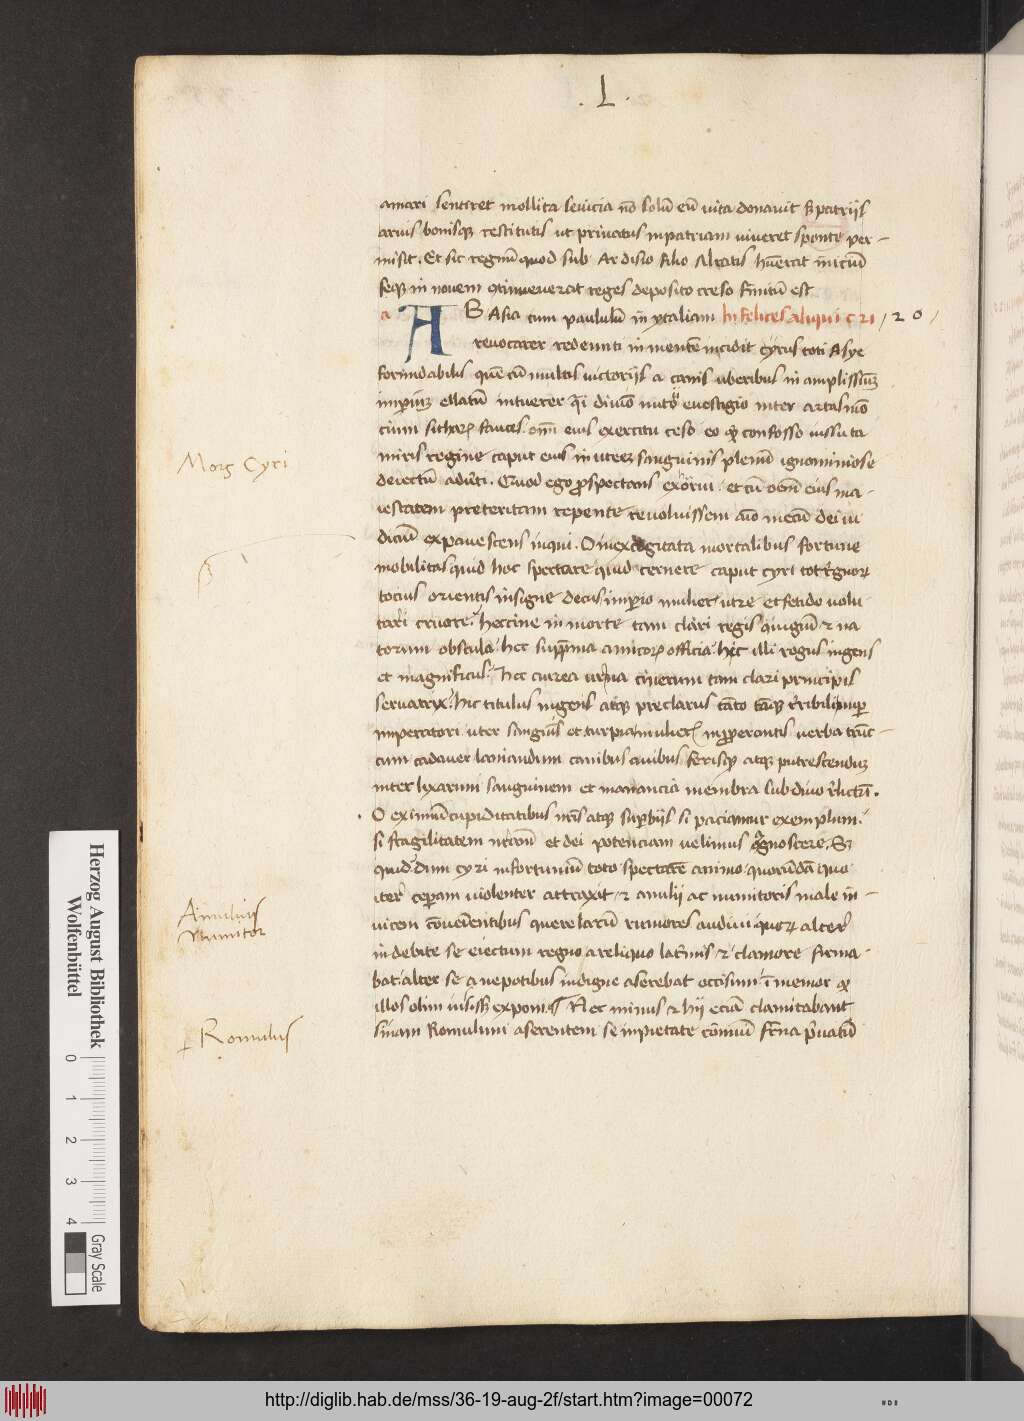 . L .
amari sentiret mollita sevicia nō solū eū vita donavit s; patrijs
arvis bonisqȝ restitutis ut privatus in patriam viveret sponte per-
misit. Et sic regnū quod sub Ardisio filio Alcatis hūerat inicīū
seqȝ in novem continuerat reges deposito creso finitū est
a
AB Asia cum paululū in ytaliam hi Felices aliqui CRI / 20 /
revocarer redeunti in mentē incidit cyrus toti Asye
formidabilis quē cū multis victorijs a canis uberibus in amplissimū
imperiū ellatū intuerer
eius exercitu ceso eo qȝ confosso iussu ta
miris regine caput eius in utrem sanguinis plenū ignominiose
deiectū adverti. Quod ego prospectans exorrui. et cū omnē eius ma-
iestatem preteritam repente revoluissem aīo mecū dei iu
diciū expavescens inqui. O inexcogitata mortalibus fortune
mobilitas quid hoc spectare quid cernere caput cyri tot regnorꝝ
tocius orientis insigne decus imperio mulieris utre et fetido volu
tari cruore. heccine in morte tam clari regis et na
torum obscula hec suprema amicorꝝ officia hic illi rogus ingens
et magnificus. hec aurea urna cinerum tam clari principis
servatrix. hic titulus ingens atqȝ preclarus tāto
imperatori uter sanguinis et turpia mulieris improperantis verba trūc-
cum cadaver laniandum canibus avibus ferisqȝ atqȝ putrescendū
inter lixarum sanguinem et manancia membra sub divo relictū.
O eximiū cupiditatibus nr̄is atqȝ superbijs si paciamur exemplum.
si fragilitatem nr̄am et dei potenciam velimus cognoscere. S;
quid dum cyri infortuniū toto spectarē animo quorūdā quo
iter cepam violenter attraxit et amulij ac numitoris male in-
vicem conveniētibus querelarū rumores audivi quorꝝ alter
indebite se eiectum regno a reliquo lacrimis et clamore firma-
bat. alter se a nepotibus indigne aserebat occisum. īmemor qȝ
illos olim iusisse exponi. Nec minus et hij eciā clamitabant
Romulum aserentem se impietate
Mors Cyri
Amulius
Numitor
Romulus
Herzog August Bibliothek
Wolfenbüttel
0 1 2 3 4
Gray Scale
http://diglib.hab.de/mss/36-19-aug-2f/start.htm?image=00072